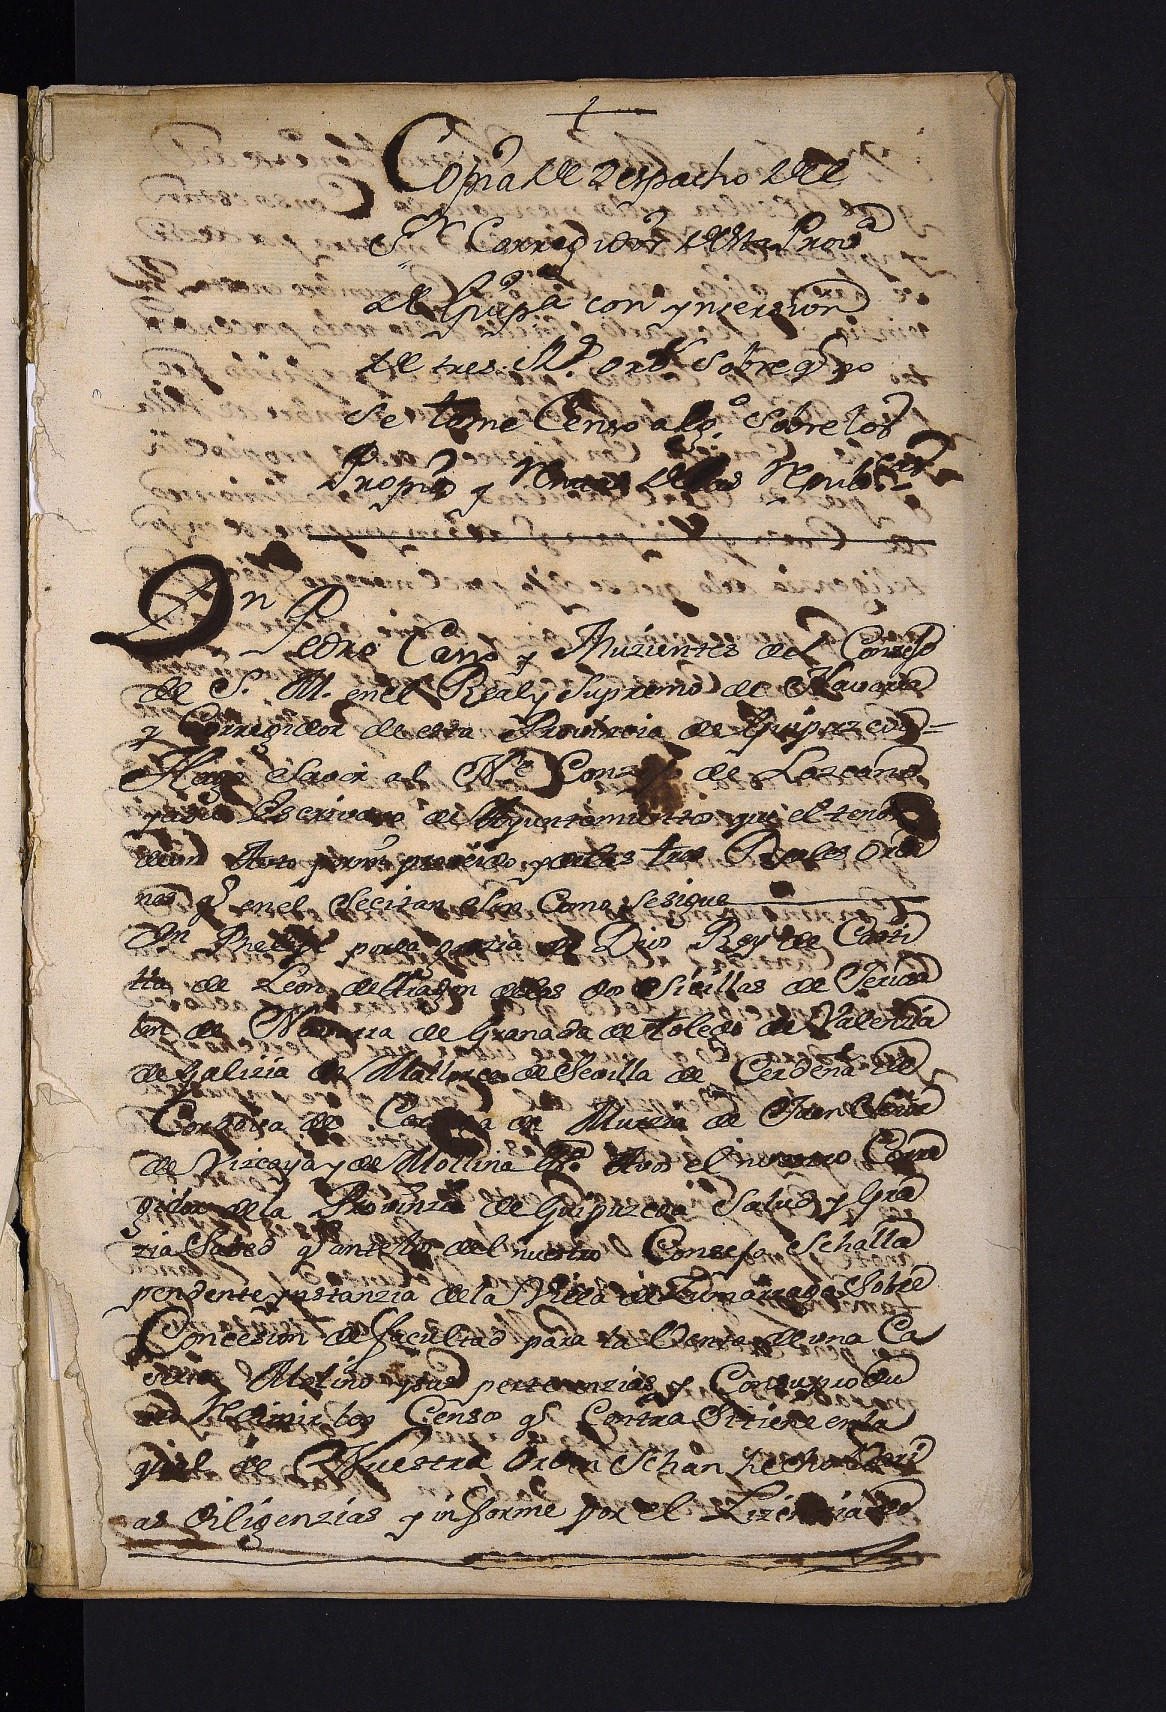 Copia del Despacho del
Sr. Corregidor desta Prova
de Guipa con ynsersion
de tres Rs. ords. sobre q no
se tome Censo algo. sobre los
Propios y Rentas de las Repubcas
Dn Pedro Cano y Muzientes del Consejo
de S. M. en el Real y Supremo de Navarra
y Corregidor de esta Provincia de Guipuzcoa =
Hago Saver al Ne Conzejo de Lazcano
y a su Escrivano de Ayuntamiento que el tenor
de un Auto por mi proveido, y de las tres Reales Orde
nes q en el Se citan Son Como se sigue
Dn Phelipe por la grazia de Dios Rey de Casti
lla de Leon de Aragon de las dos Sicilias de Jerusa
len de Navarra de Granada de Toledo de Valenzia
de Galizia de Mallorca de Sevilla de Cerdeña de
Cordova de Corzega de Murzia de Jaen Señor
de Vizcaya y de Mollina &a. A vos el nuestro Corre
gidor de la Provinzia de Guipuzcoa Salud y Gra
zia Saved q ante los del nuestro Consejo Se halla
pendente ynstanzia de la Villa de Zumarraga Sobre
Concesion de facultad para la Venta de una Ca
seria Molino y sus pertenenzias y Con su produ
cto Redimir los Censos q Contra Si tiene en la
qual de Nuestra Orden Se han hecho Vari
as diligenzias y informe por el Lizenziado